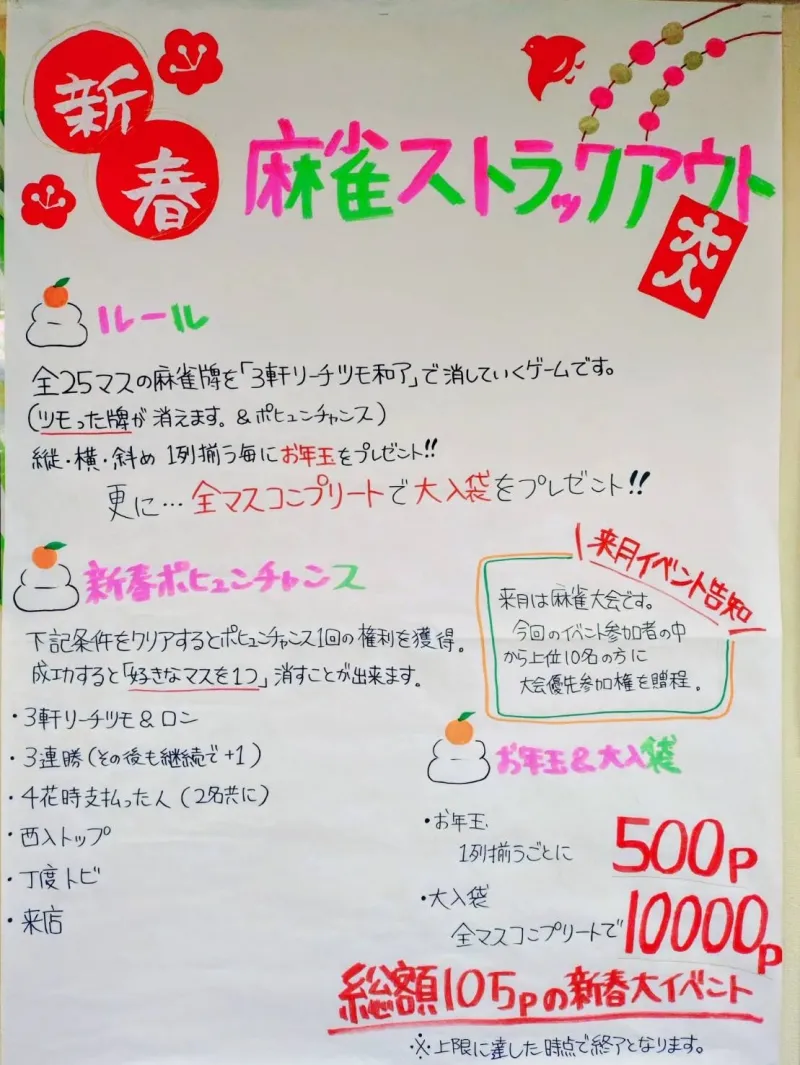 新春
麻雀ストラックアウト
大入
ルール
全25マスの麻雀牌を「3軒リーチツモ和了」で消していくゲームです。
(ツモった牌が消えます。&ポヒュンチャンス)
縦・横・斜め 1列揃う毎にお年玉をプレゼント!!
更に…全マスコンプリートで大入袋をプレゼント!!
新春ポヒュンチャンス
下記条件をクリアするとポヒュンチャンス1回の権利を獲得。
成功すると「好きなマスを1つ」消すことが出来ます。
・3軒リーチツモ&ロン
・3連勝(その後も継続で+1)
・4花時支払った人(2名共に)
・西入トップ
・丁度トビ
・来店
来月イベント告知
来月は麻雀大会です。
今回のイベント参加者の中
から上位10名の方に
大会優先参加権を贈程。
お年玉&大入袋
・お年玉
1列揃うごとに 500P
・大入袋
全マスコンプリートで 10000P
総額10万Pの新春大イベント
※上限に達した時点で終了となります。